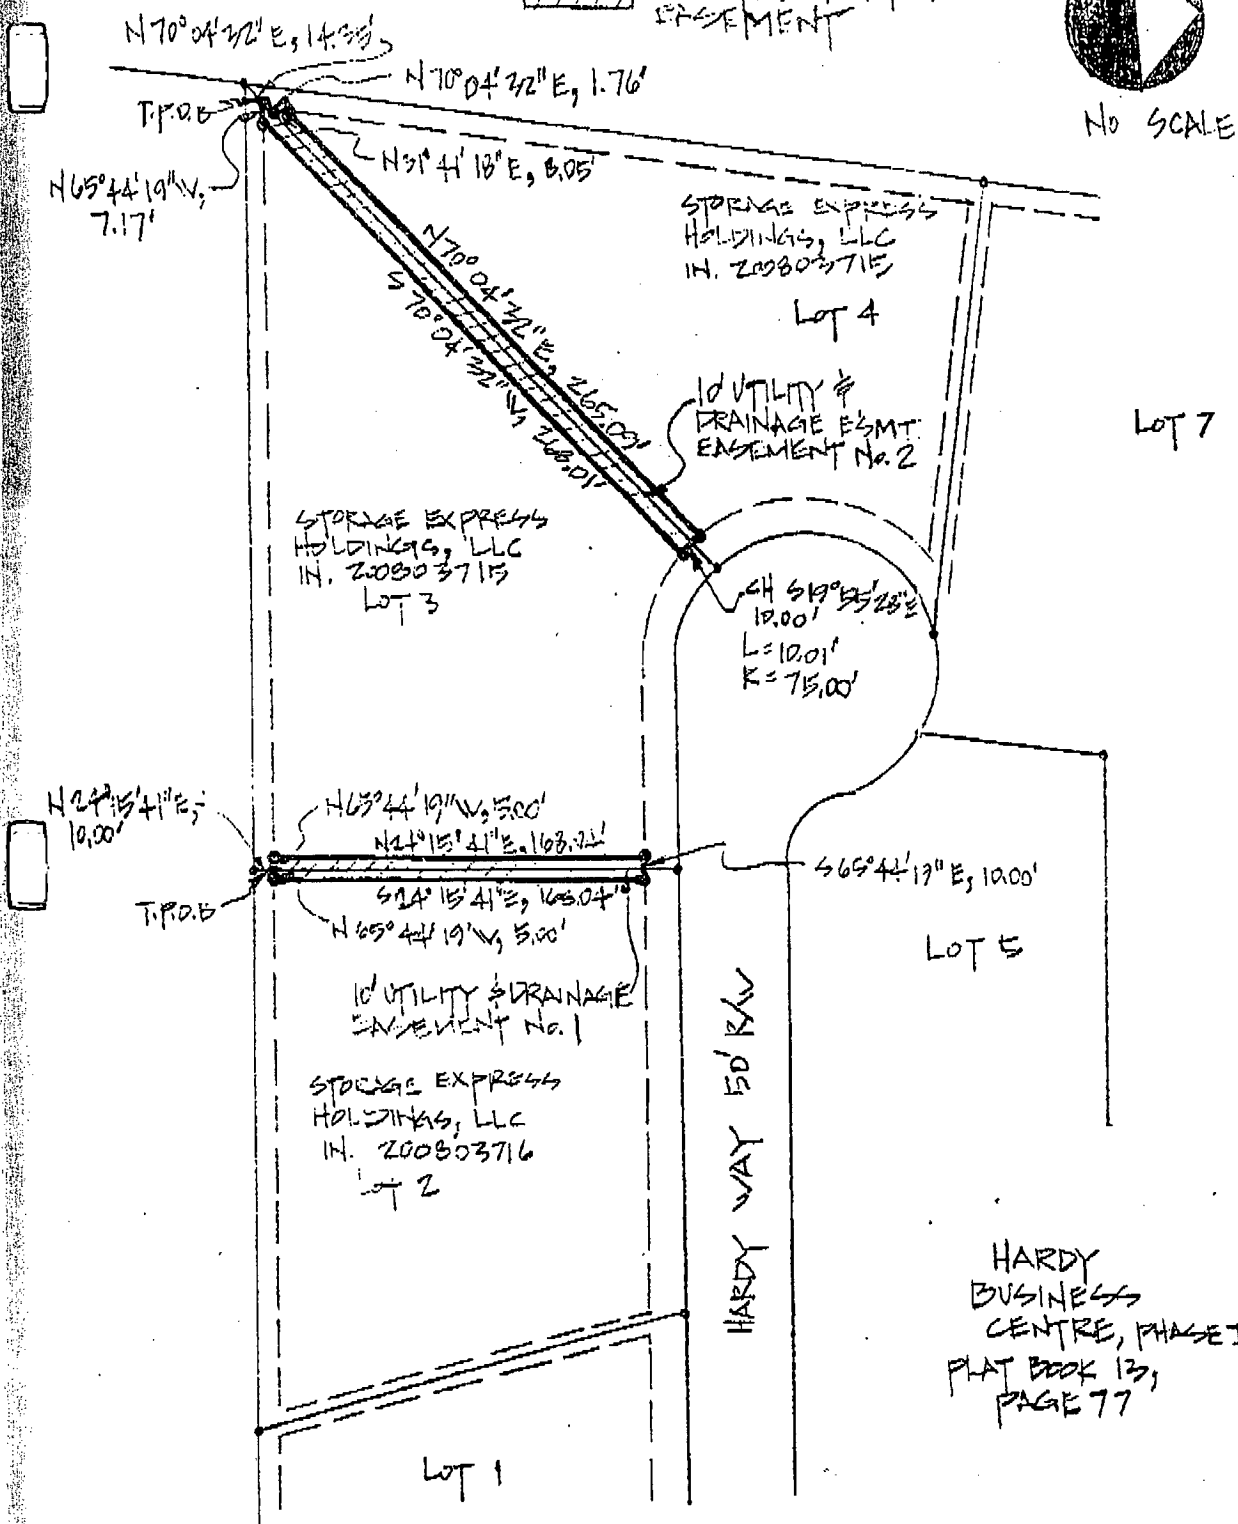 EASEMENT
NO SCALE
N70°04'32"E, 14.35'
N70°04'32"E, 1.76'
T.P.O.B
N31°41'18"E, 8.05'
N65°44'19"W,
7.17'
STORAGE EXPRESS
HOLDINGS, LLC
IN. 200803715
LOT 4
N70°04'32"E, 265.09'
S70°04'32"W,
10' UTILITY &
DRAINAGE ESMT.
EASEMENT No. 2
LOT 7
STORAGE EXPRESS
HOLDINGS, LLC
IN. 200803715
LOT 3
CH S19°55'28"E
10.00'
L=10.01'
R=75.00'
N24°15'41"E,
10.00'
N65°44'19"W, 5.00'
N24°15'41"E,
S65°44'19"E, 10.00'
T.P.O.B
S24°15'41"E, 163.04'
N65°44'19"W, 5.00'
LOT 5
10' UTILITY & DRAINAGE
EASEMENT No. 1
STORAGE EXPRESS
HOLDINGS, LLC
IN. 200803716
LOT 2
HARDY WAY 50' R/W
HARDY
BUSINESS
CENTRE, PHASE I
PLAT BOOK 13,
PAGE 77
LOT 1